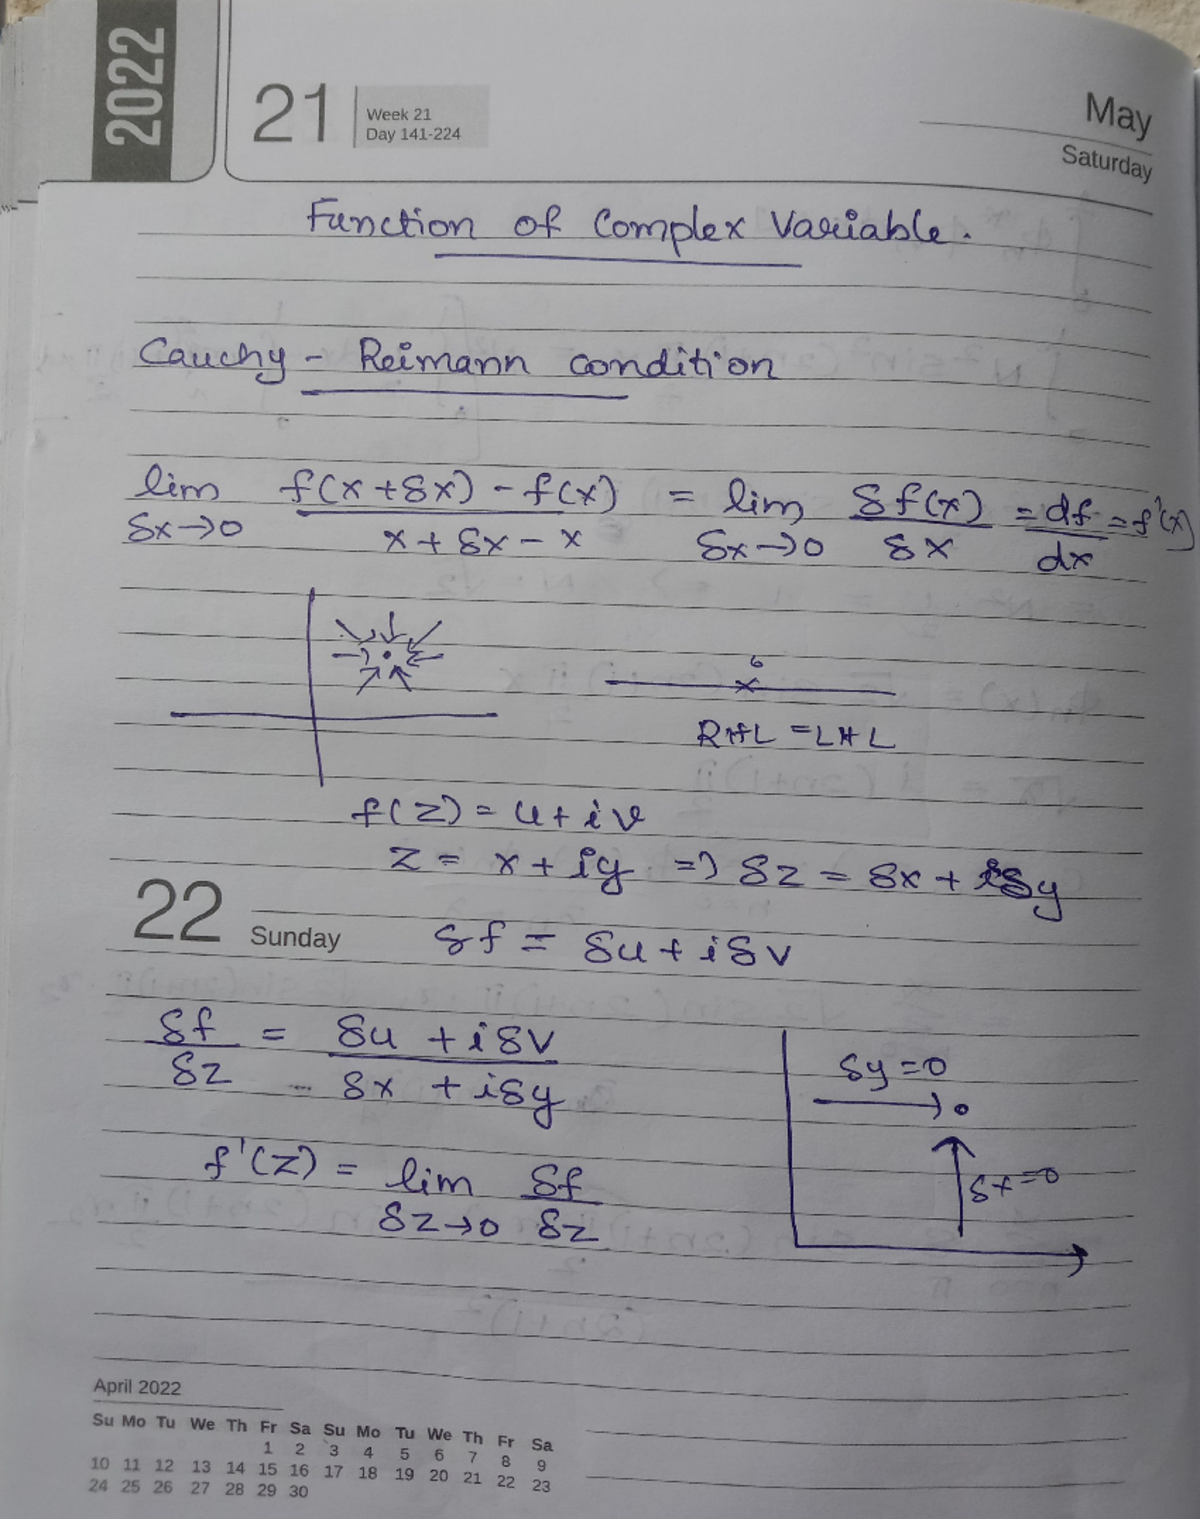 2022
21
Week 21
Day 141-224
May
Saturday
Function of Complex Variable.
Cauchy - Reimann condition
lim f(x+δx) - f(x) = lim δf(x) = df = f'(x)
δx→0 x+δx-x δx→0 δx dx
RHL = LHL
f(z) = u+iv
z = x+iy => δz = δx + iδy
22 Sunday
δf = δu + iδv
δf = δu + iδv
δz δx + iδy
δy=0
f'(z) = lim δf
δz→0 δz
δx=0
April 2022
Su Mo Tu We Th Fr Sa Su Mo Tu We Th Fr Sa
1 2 3 4 5 6 7 8 9
10 11 12 13 14 15 16 17 18 19 20 21 22 23
24 25 26 27 28 29 30